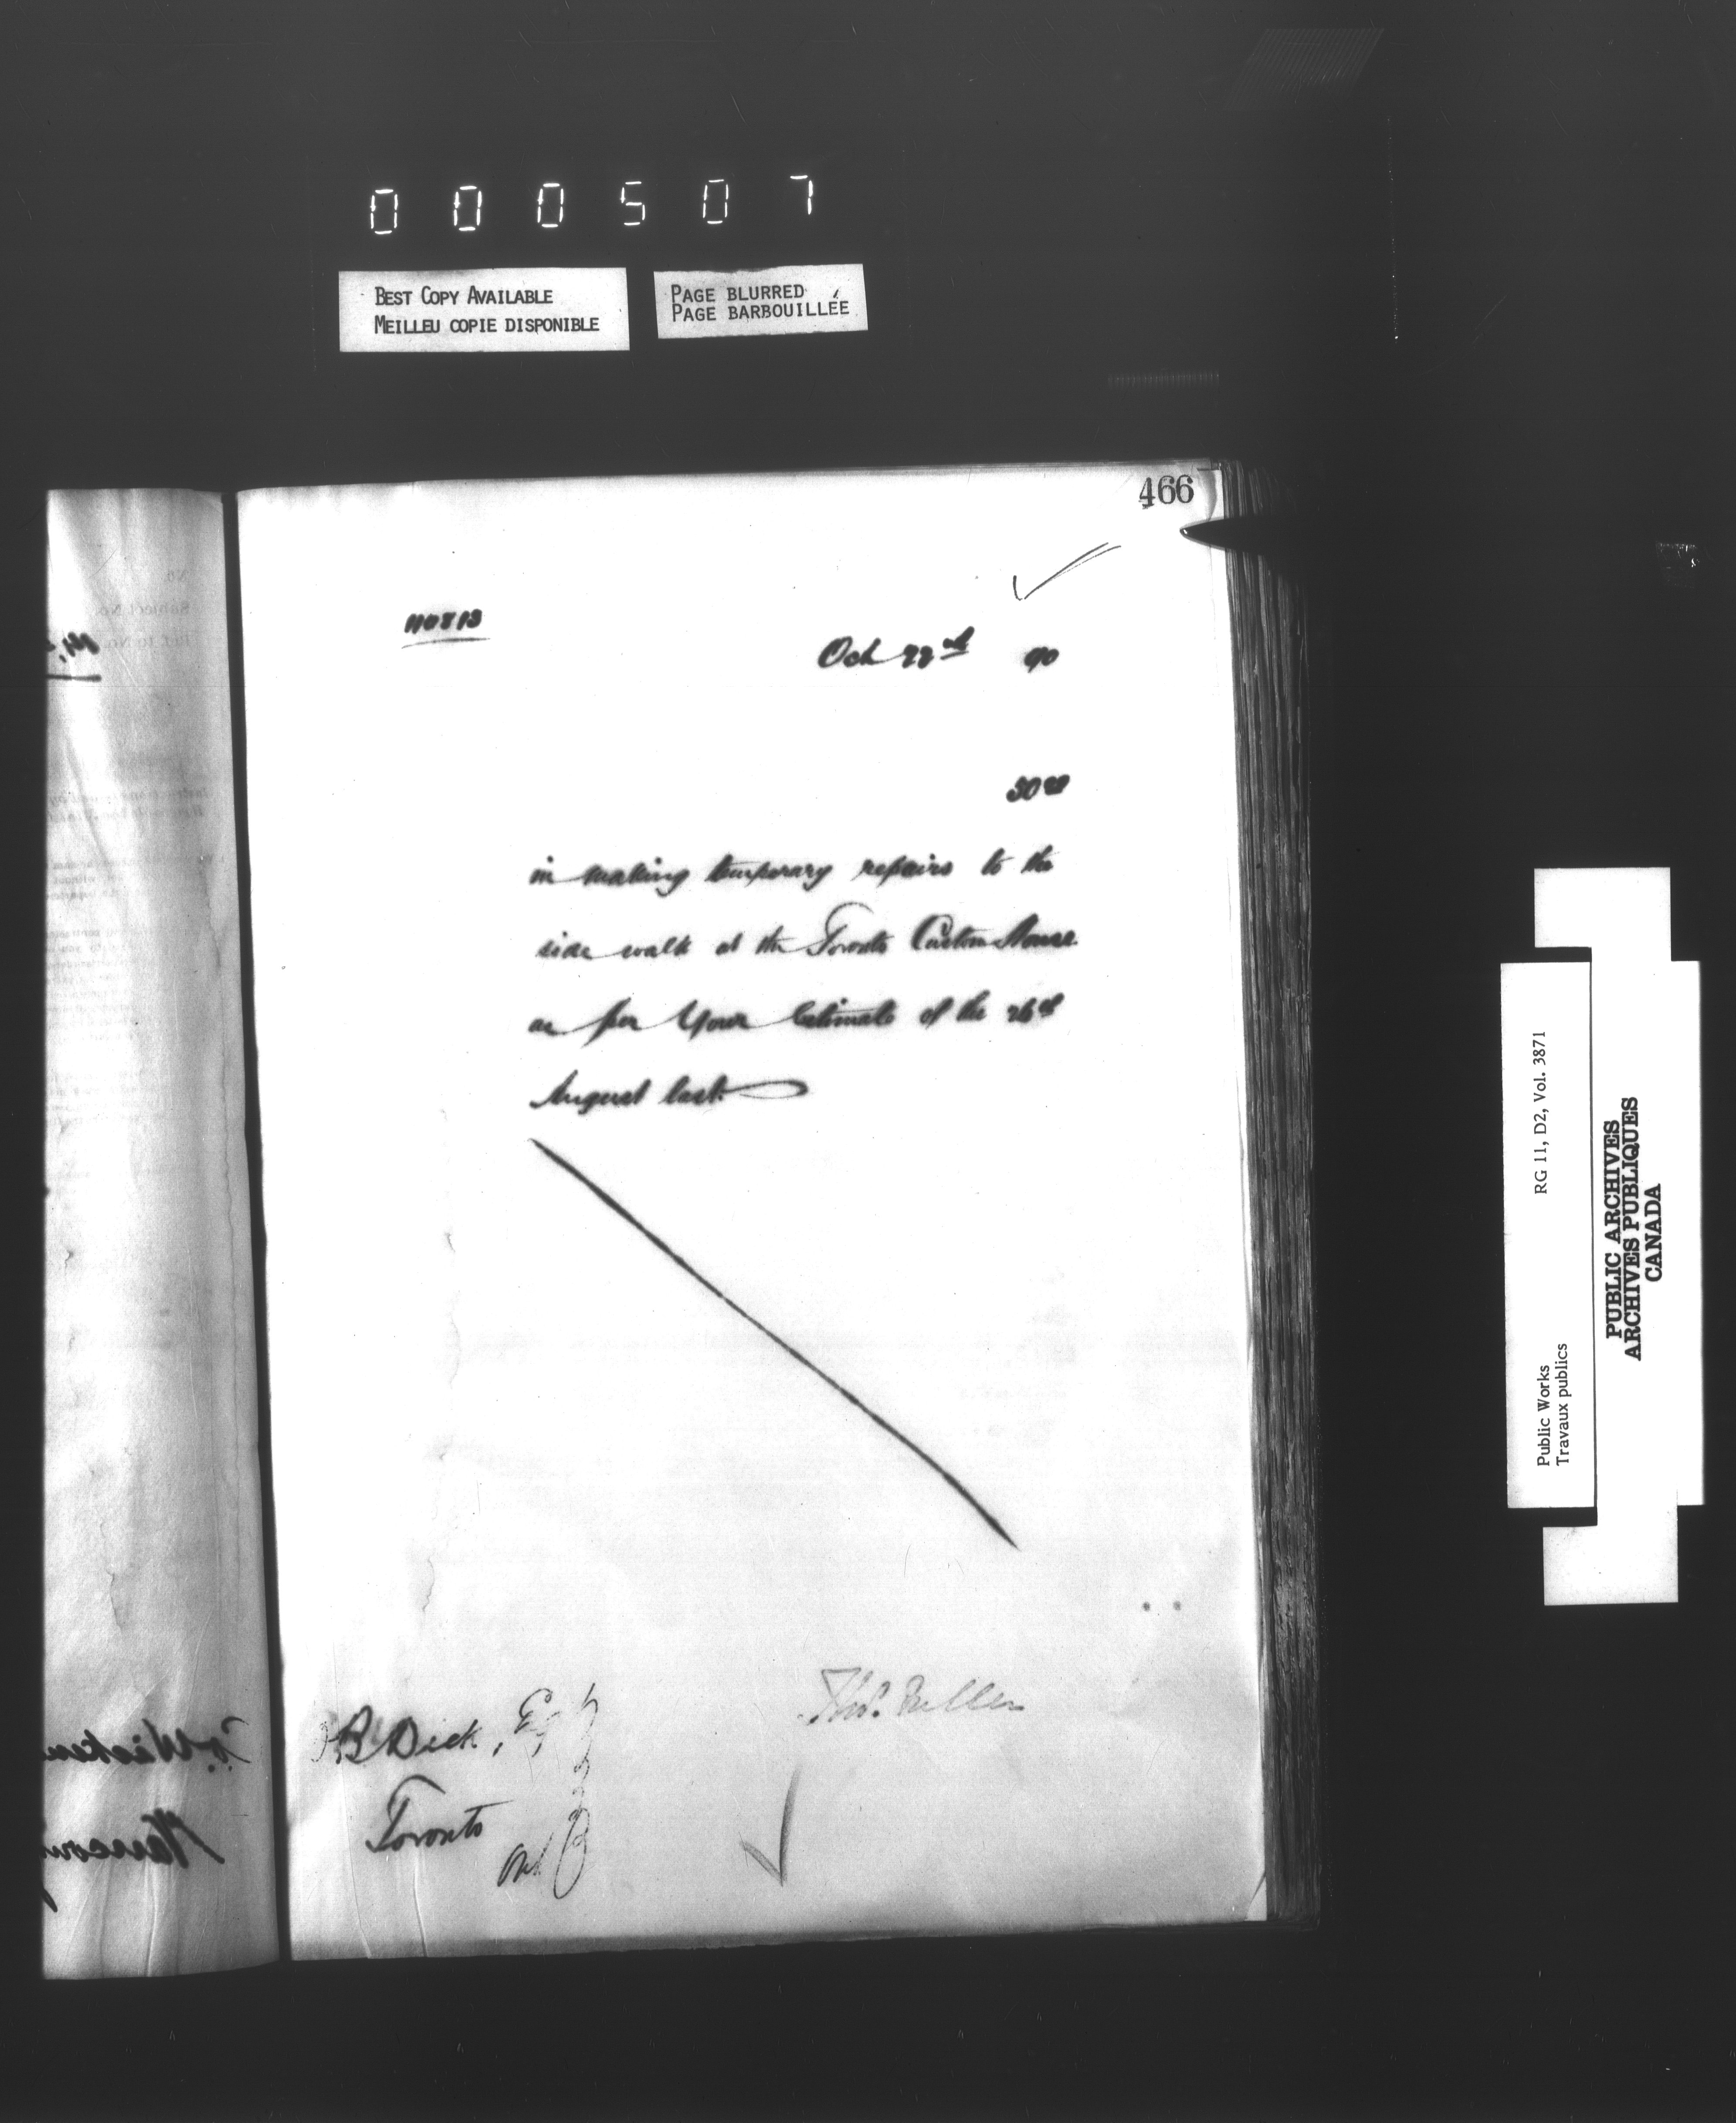 000507
BEST COPY AVAILABLE
MEILLEU COPIE DISPONIBLE
PAGE BLURRED
PAGE BARBOUILLÉE
466
110813
Oct 22nd 90
50 00
in making temporary repairs to the
side walk at the Toronto Custom House
as per Your Estimate of the 26th
August last.
Thos. Fuller
B Dick, Esq
Toronto
Ont
Public Works RG 11, D2, Vol. 3871
Travaux publics
PUBLIC ARCHIVES
ARCHIVES PUBLIQUES
CANADA